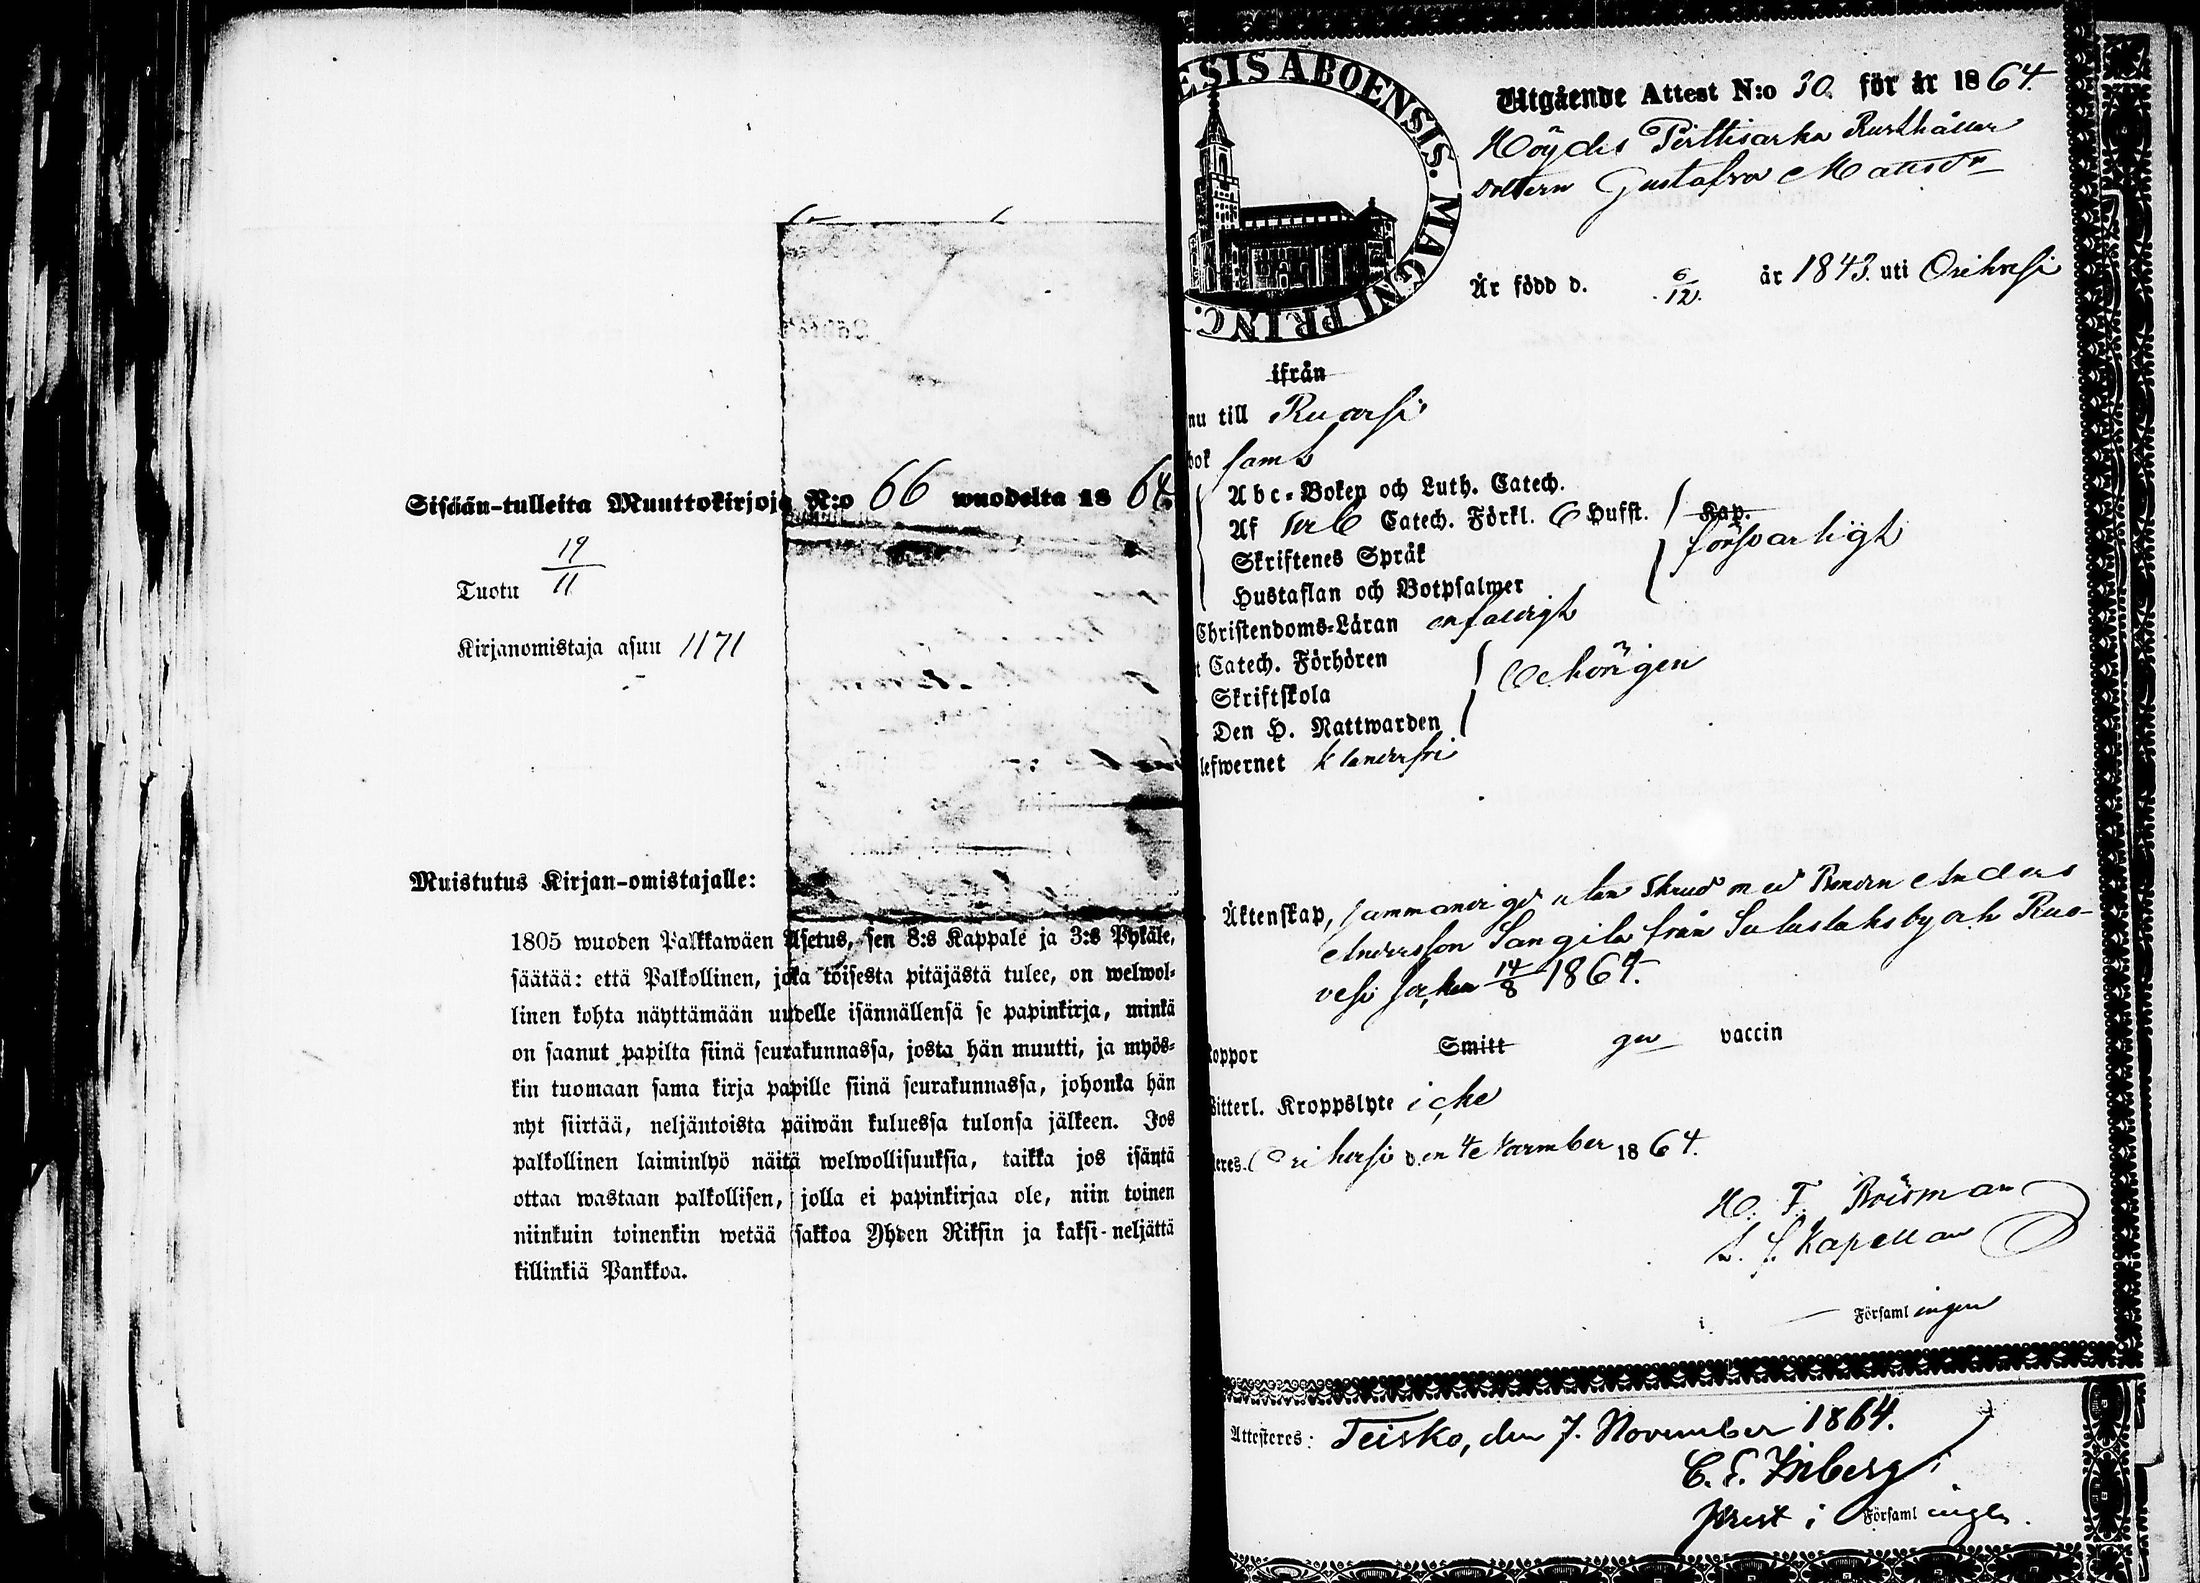 Sisään-tulleita Muuttokirjoja N:o 66 wuodelta 18 64.
19/11
Tuotu
Kirjanomistaja asuu 1171
Muistutus Kirjan-omistajalle:
1805 wuoden Palkkawäen Asetus, sen 8:s Kappale ja 3:s Pykäle,
säätää: että Palkollinen, joka toisesta pitäjästä tulee, on welwol-
linen kohta näyttämään uudelle isännällensä se papinkirja, minkä
on saanut papilta siinä seurakunnassa, josta hän muutti, ja myös-
kin tuomaan sama kirja papille siinä seurakunnassa, johonka hän
nyt siirtää, neljäntoista päiwän kuluessa tulonsa jälkeen. Jos
palkollinen laiminlyö näitä welwollisuuksia, taikka jos isäntä
ottaa wastaan palkollisen, jolla ei papinkirjaa ole, niin toinen
niinkuin toinenkin wetää sakkoa Yhden Riksin ja kaksi-neljättä
killinkiä Pankkoa.
ESIS ABOENSIS. MAGNI PRINC.
Utgående Attest N:o 30. för år 1864.
Pirttisarka Rusthållar
dottern Gustafva Matts Dr
Är född d. 6/12. år 1843. uti Orihvesi
ifrån
nu till Ruovesi
bok samt
Abc-Boken och Luth. Catech.
Af Catech. Förkl. Hufst. Kap.
försvarligt
Skriftenes Språk
Hustaflan och Botpsalmer
Christendoms-Läran enfaldigt
Catech. Förhören
behörigen
Skriftskola
Den H. Nattwarden
lefwernet klanderfri
Äktenskap, sammanvigd utan Skrud med Bonden Anders
Andersson Sangila från by och Ruo-
vesi socken 14/8 1864.
koppor Smitt gm vaccin
Witterl. Kroppslyte icke
Orihvesi den 4e November 1864.
H. F. Broisman
Kapellan
i Församlingen
Attesteres: Teisko, den 7. November 1864.
C. F.
prest i Församlingen.